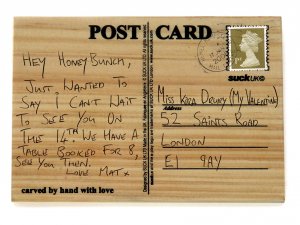 POST CARD
HEY HONEYBUNCH,
JUST WANTED TO
SAY I CAN'T WAIT
TO SEE YOU ON
THE 14TH. WE HAVE A
TABLE BOOKED FOR 8,
SEE YOU THEN.
LOVE MAT X
carved by hand with love
SUCK UK
MISS KIRA DRURY (MY VALENTINE)
52 SAINTS ROAD
LONDON
E1 9AY